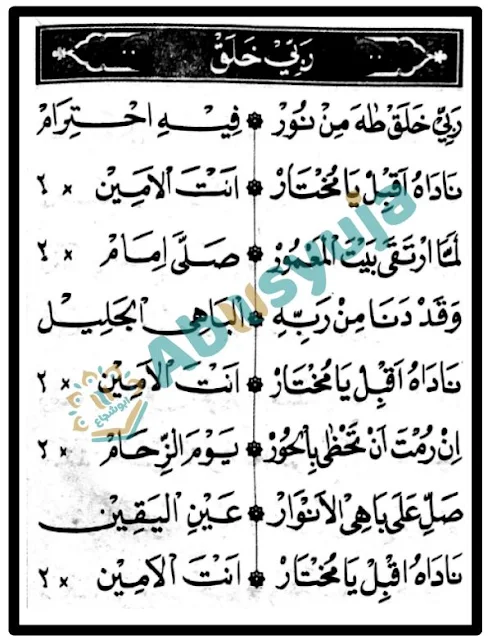 رَبِّيْ خَلَقْ
رَبِّيْ خَلَقْ طٰهَ مِنْ نُوْرْ ۞ فِيْهِ احْتِرَامْ
نَادَاهُ اَقْبِلْ يَا مُخْتَارْ ۞ اَنْتَ الْاَمِيْن × ٢
لَمَّا ارْتَقَى بَيْتَ الْمَعْمُوْر ۞ صَلَّى اِمَامْ × ٢
وَقَدْ دَنَا مِنْ رَبِّهِ ۞ اَلْبَاهِى الْجَلِيْل
نَادَاهُ اَقْبِلْ يَا مُخْتَارْ ۞ اَنْتَ الْاَمِيْن × ٢
اِنْ رُمْتَ اَنْ تَحْظٰى بِالْحُوْرْ ۞ يَوْمَ الزِّحَامْ × ٢
صَلِّ عَلَى بَاهِى الْاَنْوَارْ ۞ عَيْنِ الْيَقِيْن
نَادَاهُ اقْبِلْ يَا مُخْتَارْ ۞ اَنْتَ الْاَمِيْن × ٢
Abusyuja
ابوشجاع